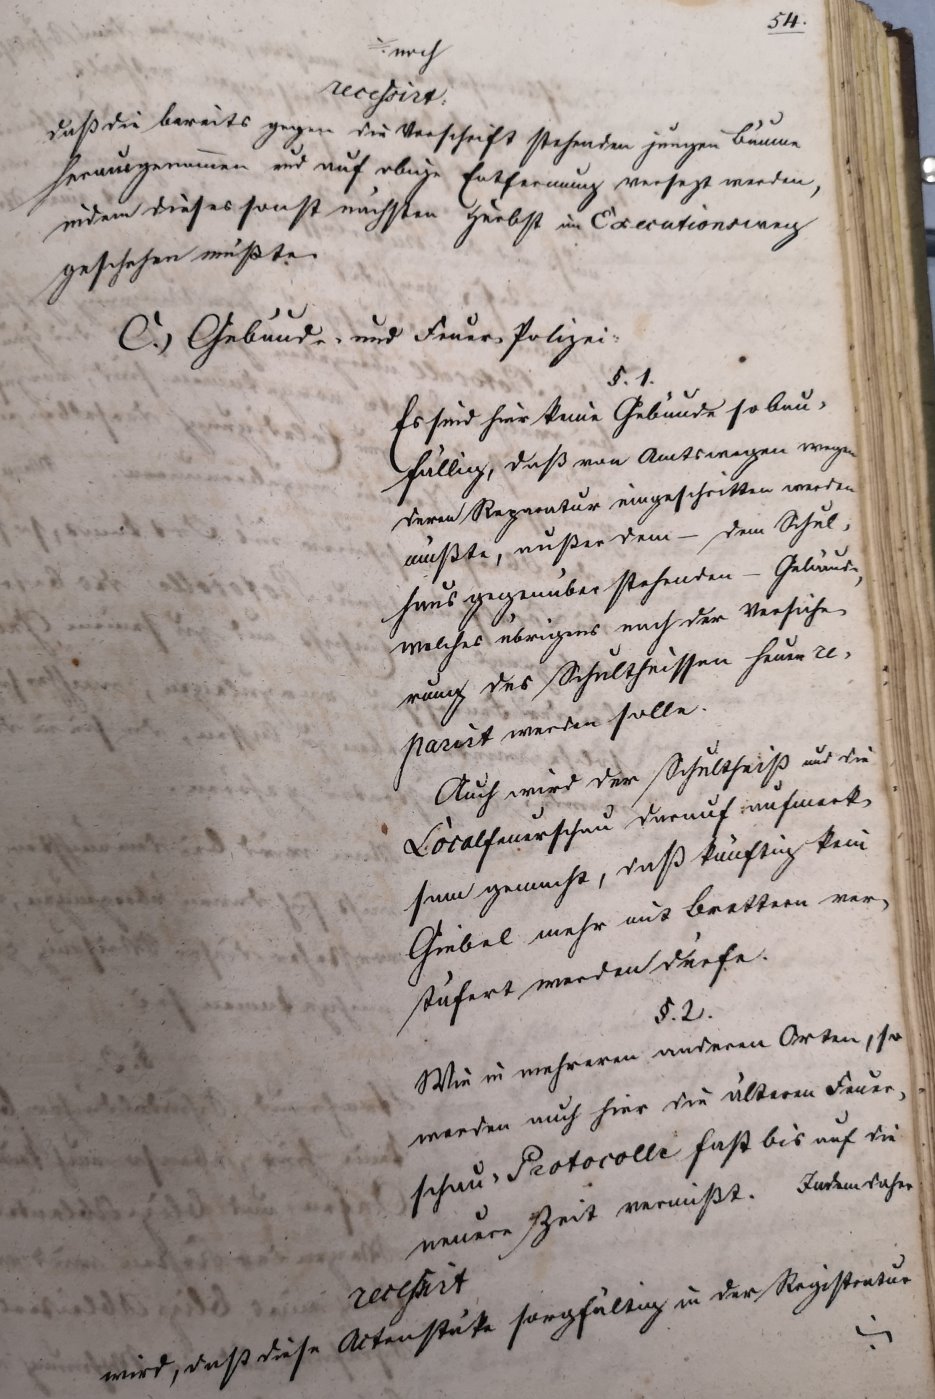 54.
noch
recessirt:
daß die bereits gegen die Vorschrift stehenden jungen Bäume
herausgenommen und auf obige Entfernung versezt werden,
indem dieses sonst nächsten Herbst im Executionsweg
geschehen müßte.
C.) Gebäude- und Feuer-Polizei:
§. 1.
Es sind hier keine Gebäude so bau-
fällig, daß von Amtswegen wegen
deren Reparatur eingeschritten werden
müßte, außer dem – dem Schul-
haus gegenüber stehenden – Gebäude,
welches übrigens nach der Versiche-
rung des Schultheissen heuer re-
parirt werden solle.
Auch wird der Schultheiß und die
Localfeuerschau darauf aufmerk-
sam gemacht, daß künftig kein
Giebel mehr mit Brettern ver-
täfert werden dürfe.
§. 2.
Wie in mehreren anderen Orten, so
werden auch hier die älteren Feuer-
schau-Protocolle fast bis auf die
neuere Zeit vermißt. Indem daher
recessirt
wird, daß diese Actenstüke sorgfältig in der Registratur